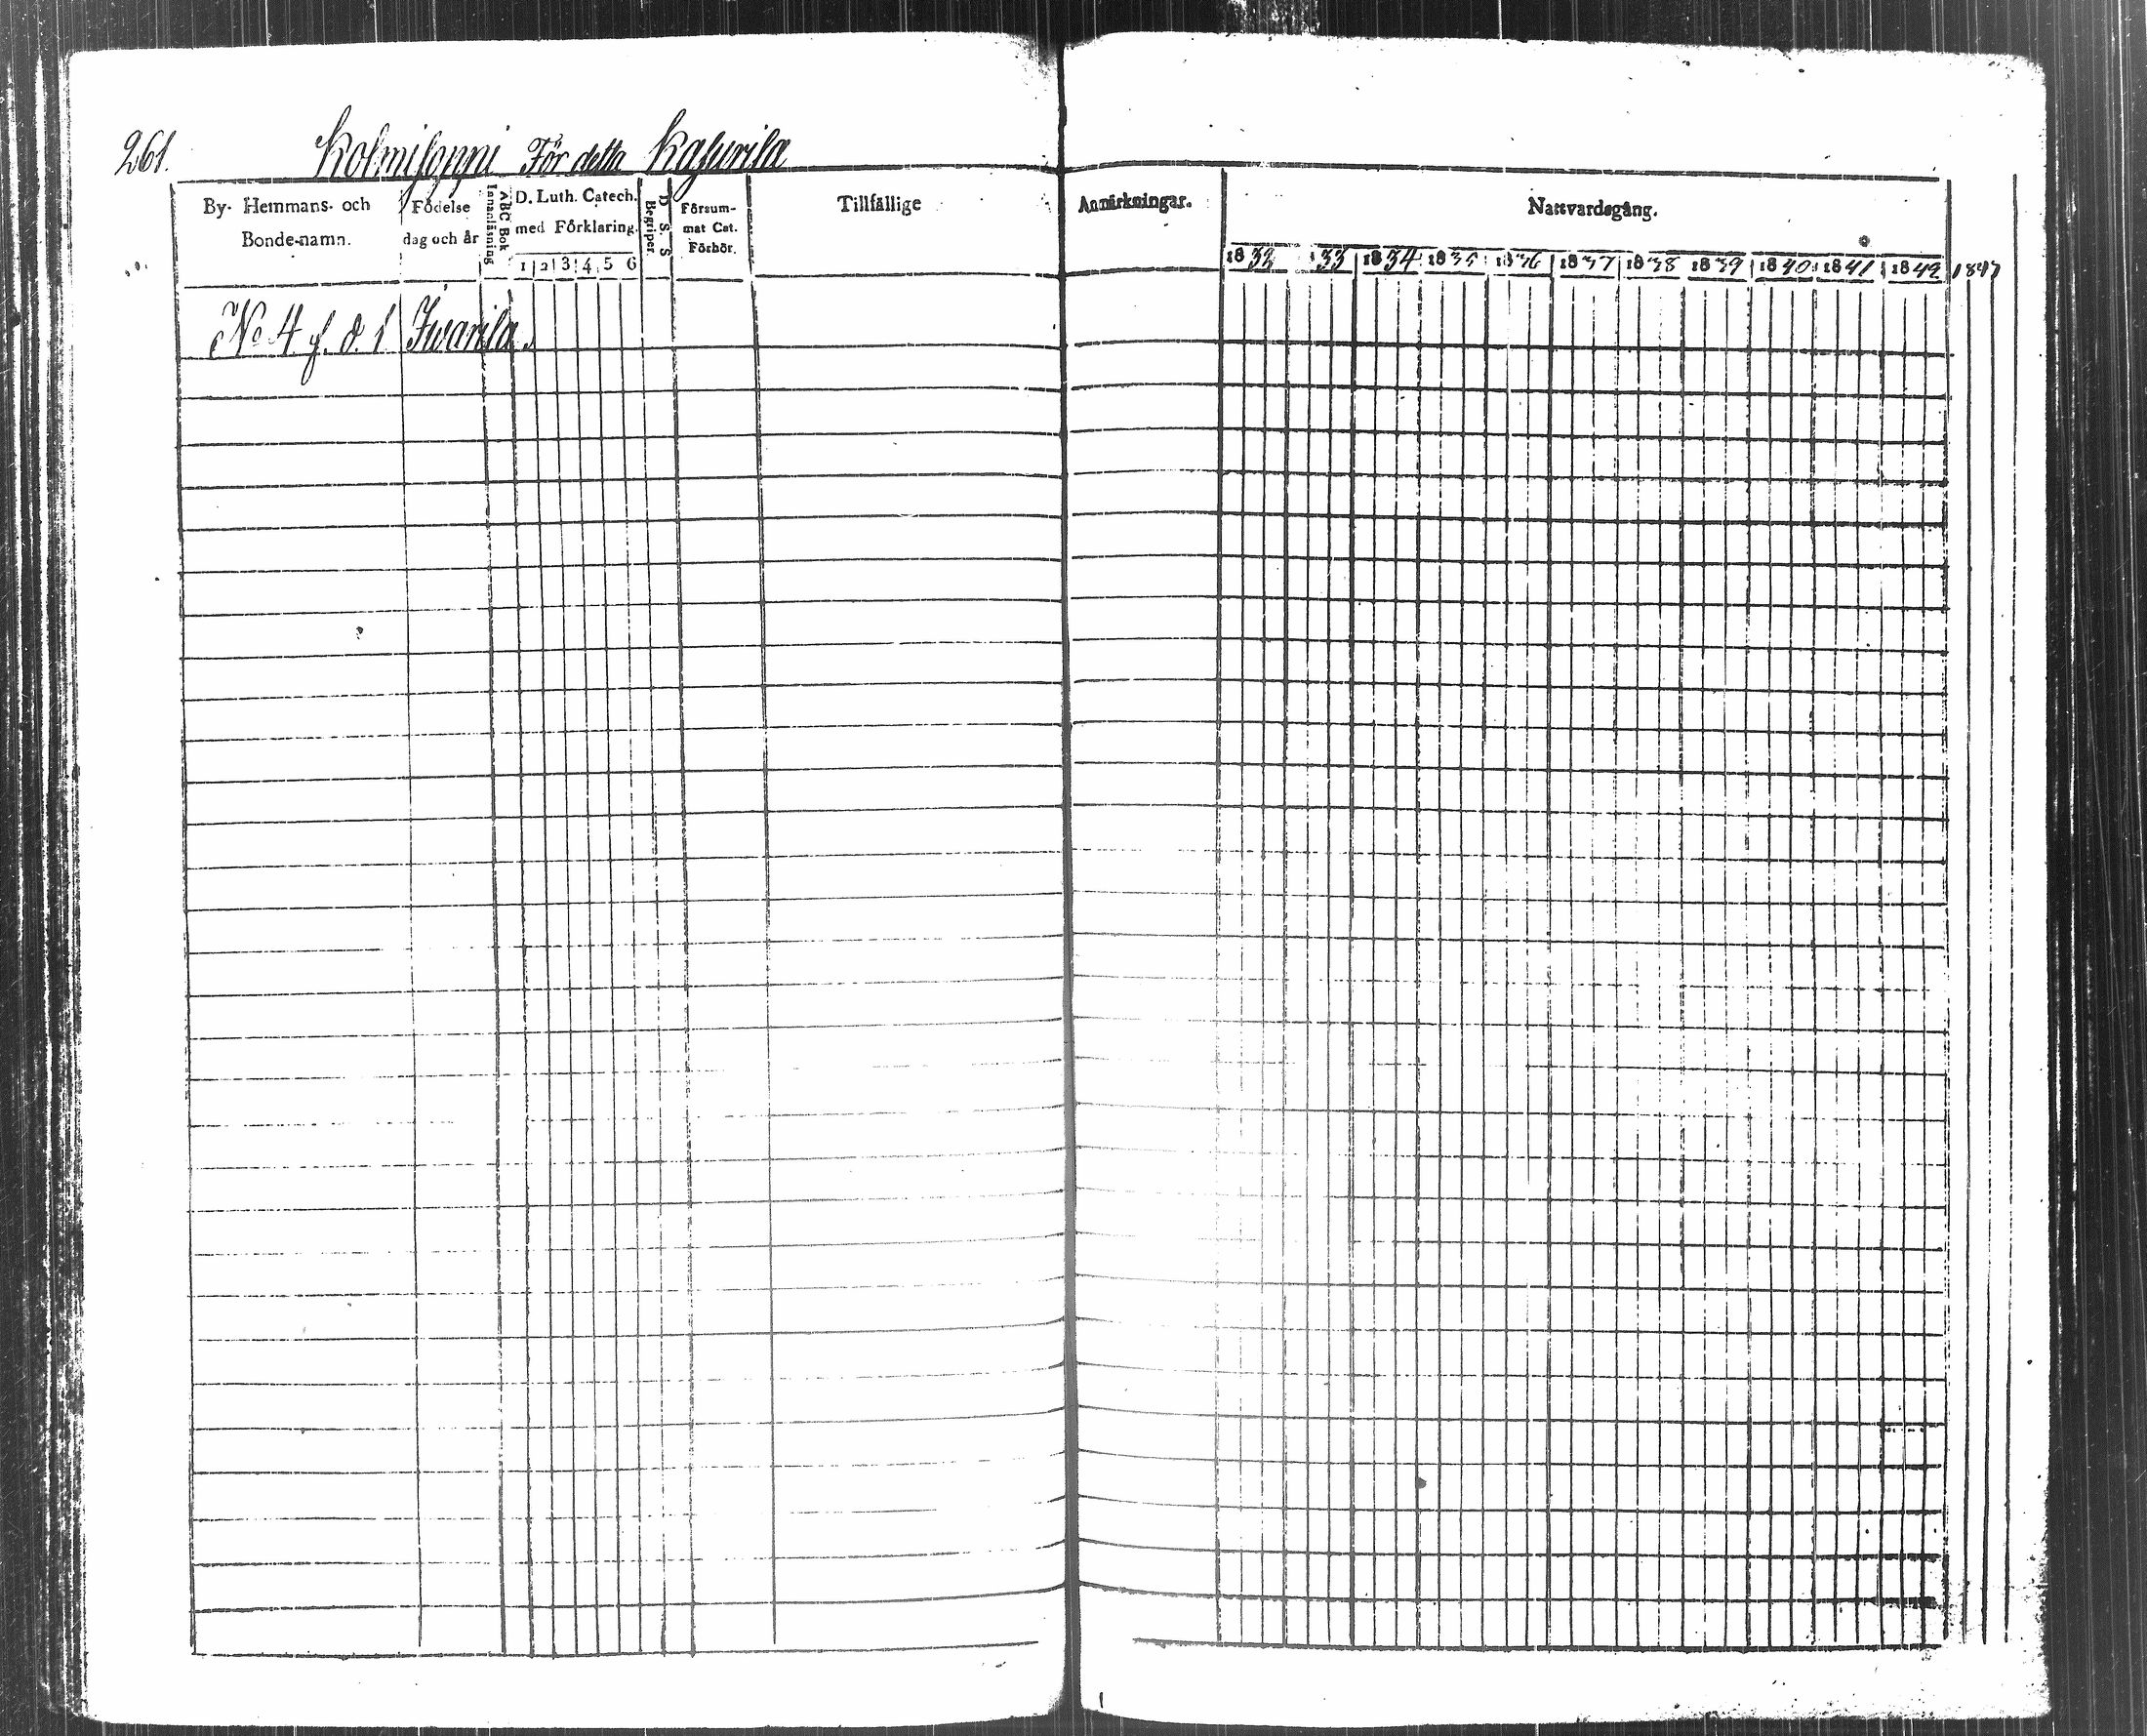 261. Kolmisoppi För detta Kasurila
By- Hemmans- och
Bonde-namn.
Födelse
dag och år
ABC Bok
Innanläsning
D. Luth. Catech.
med Förklaring.
1 2 3 4 5 6
D. S. S
Begriper
Försum-
mat Cat.
Förhör.
Tillfällige
Anmärkningar.
Nattvardsgång.
1832 33 1834 1835 1836 1837 1838 1839 1840 1841 1842 1843
No 4 f. d. 1 Iwarila